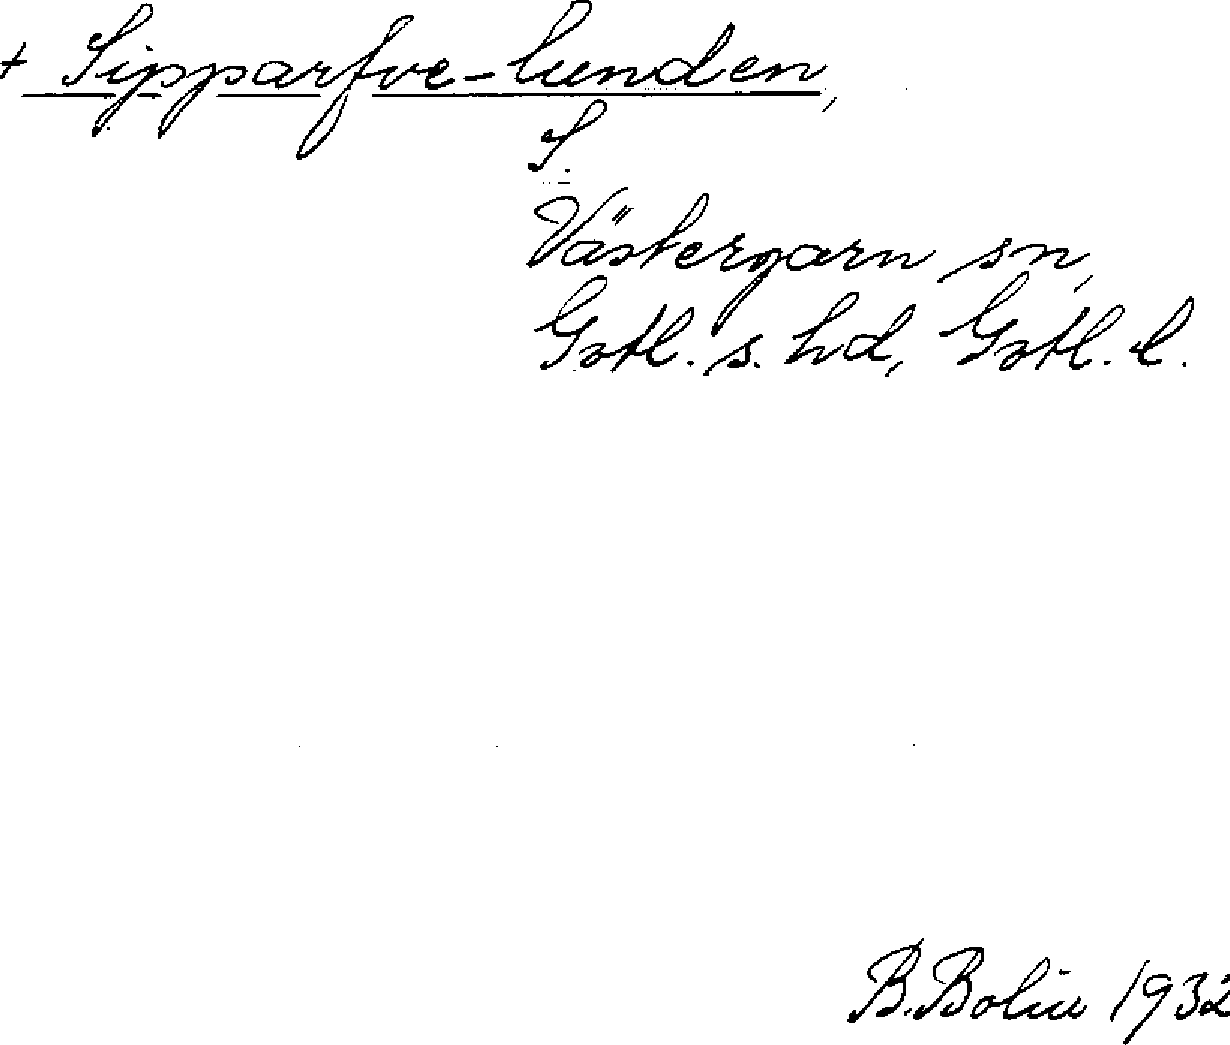 + Sipparfve-lunden,
S.
Västergarn sn,
Gotl. s. hd, Gotl. l.
B. Bolin 1932